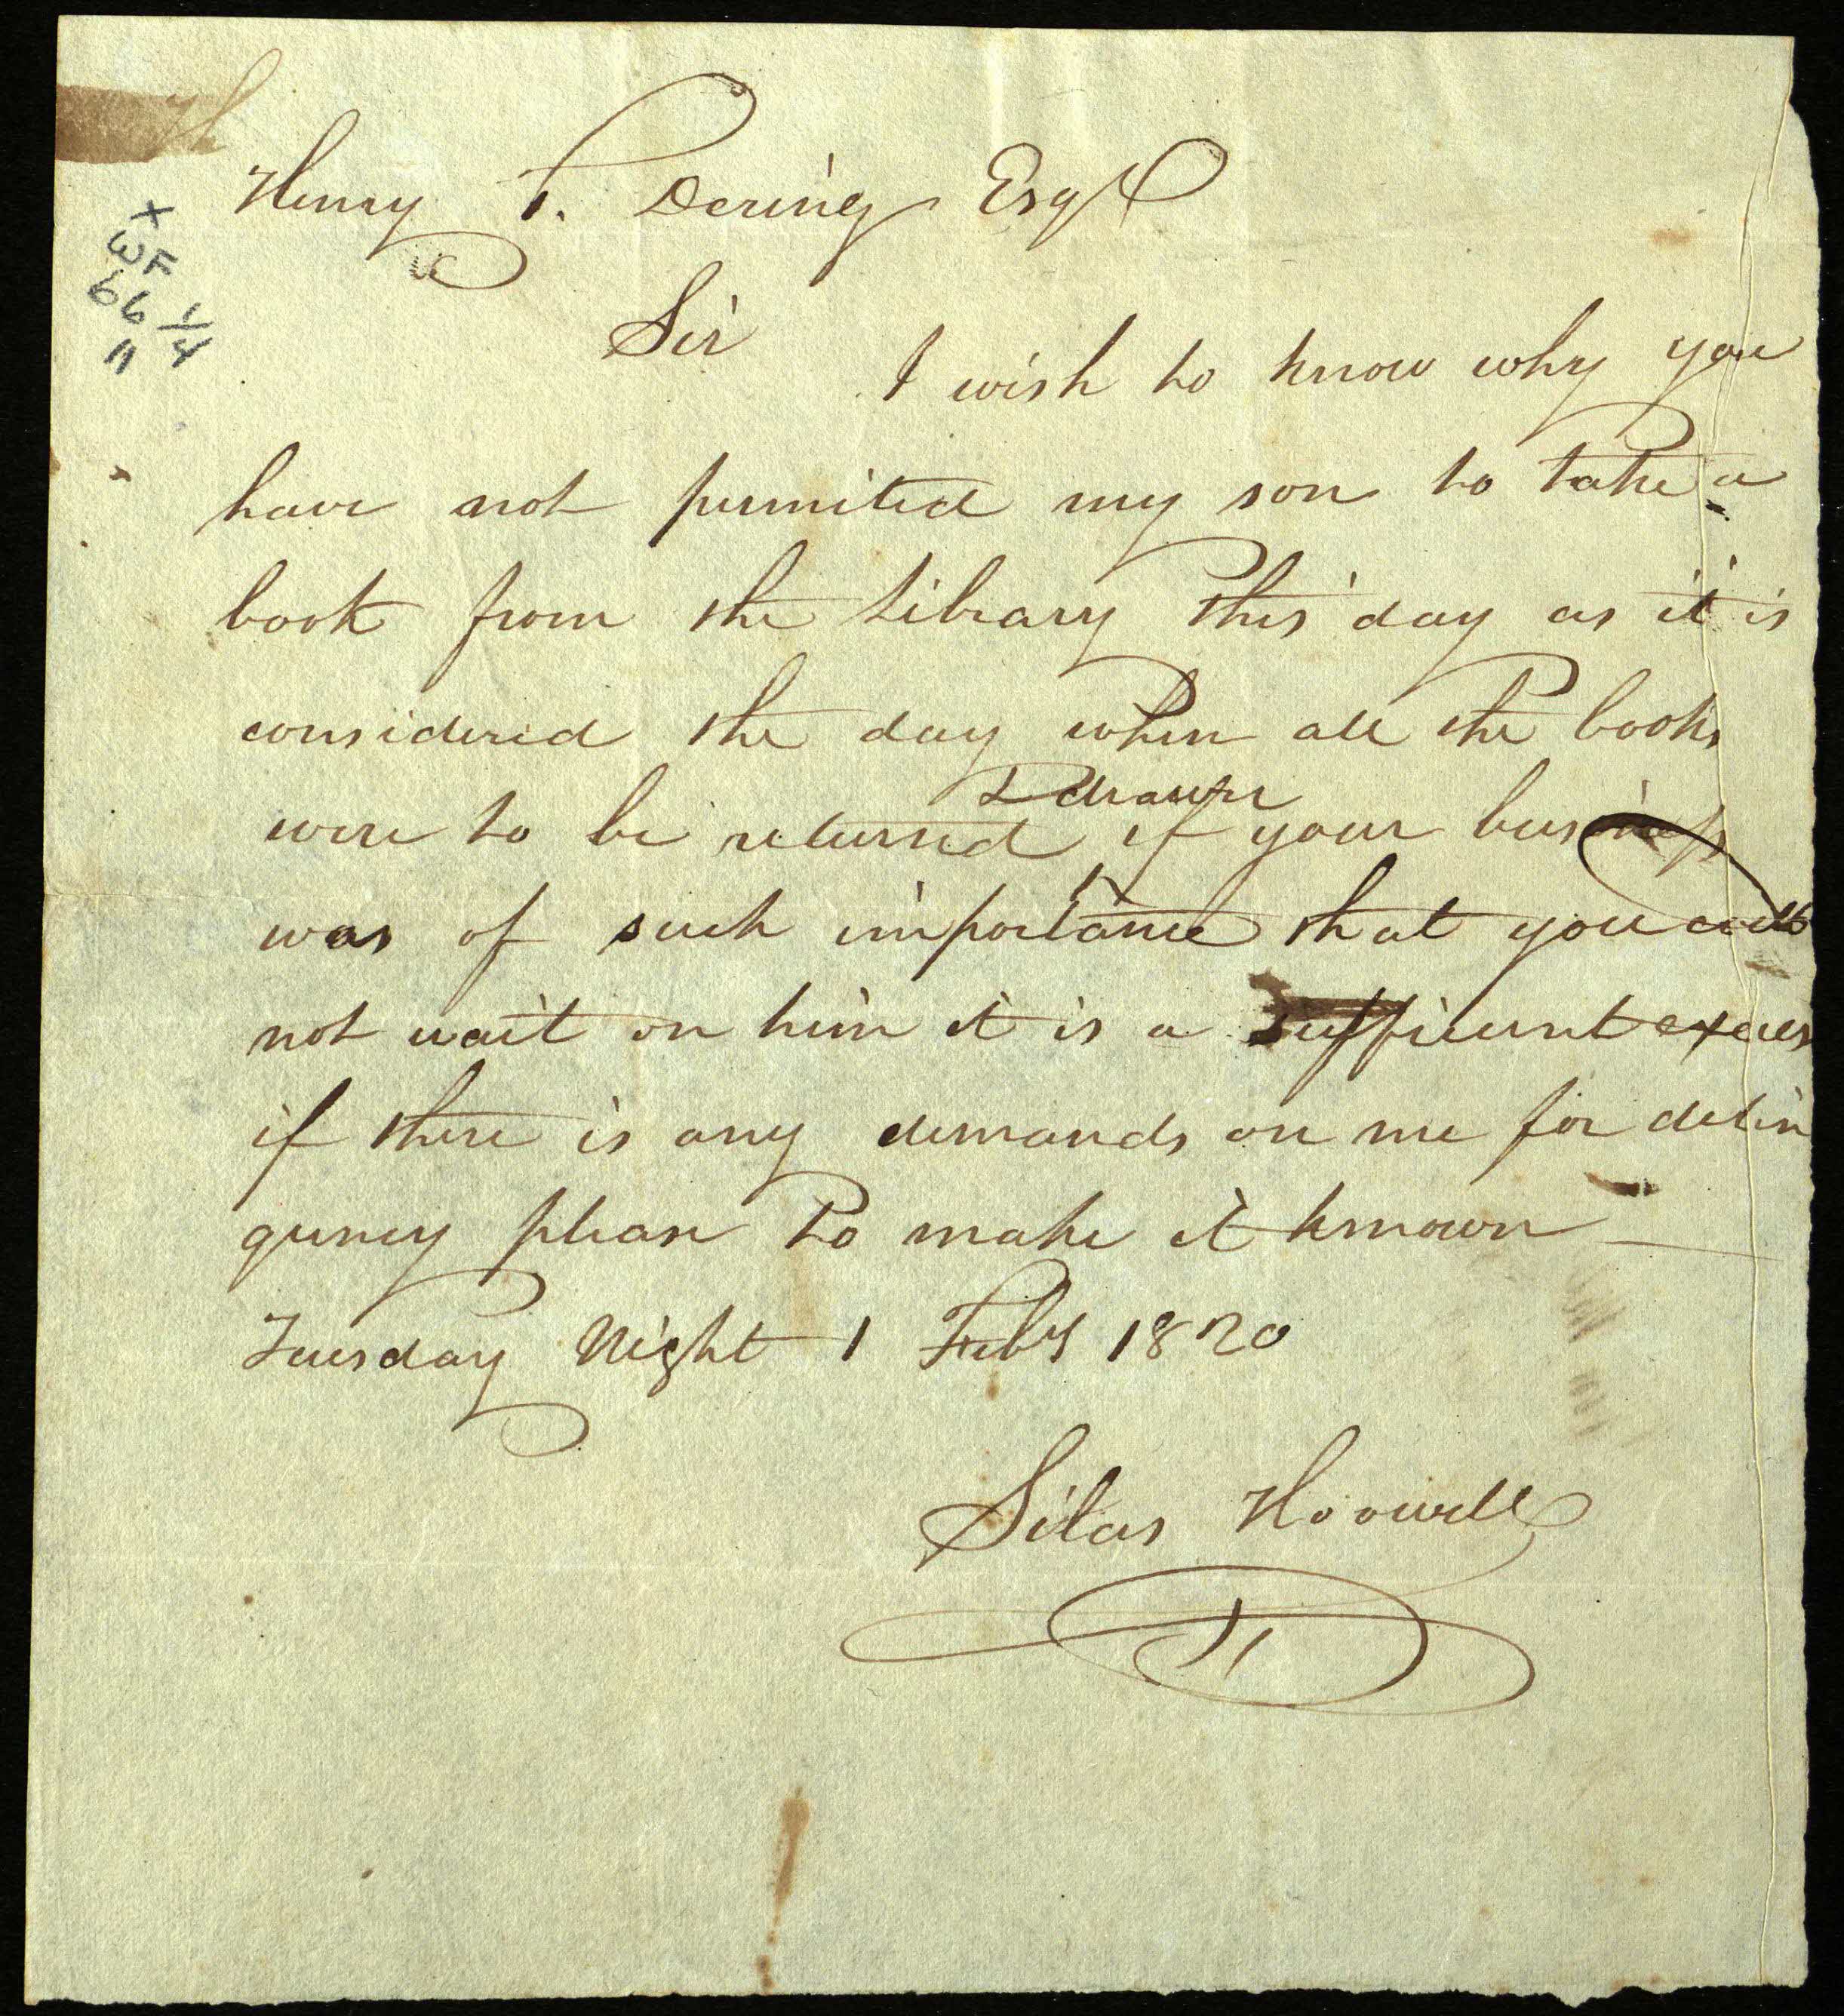 Henry T. Dering Esqr
Sir
I wish to know why you
have not permited my son to take a
book from the Library this day as it is
considered the day when all the books
& drawn
were to be returned ^ if your business
was of such importance that you could
not wait on him it is a sufficient excus
if there is any demands on me for delin
quency please to make it known
Tuesday Night 1 Feby 1820
Silas Hoowell
x
WF
66 1/4
11